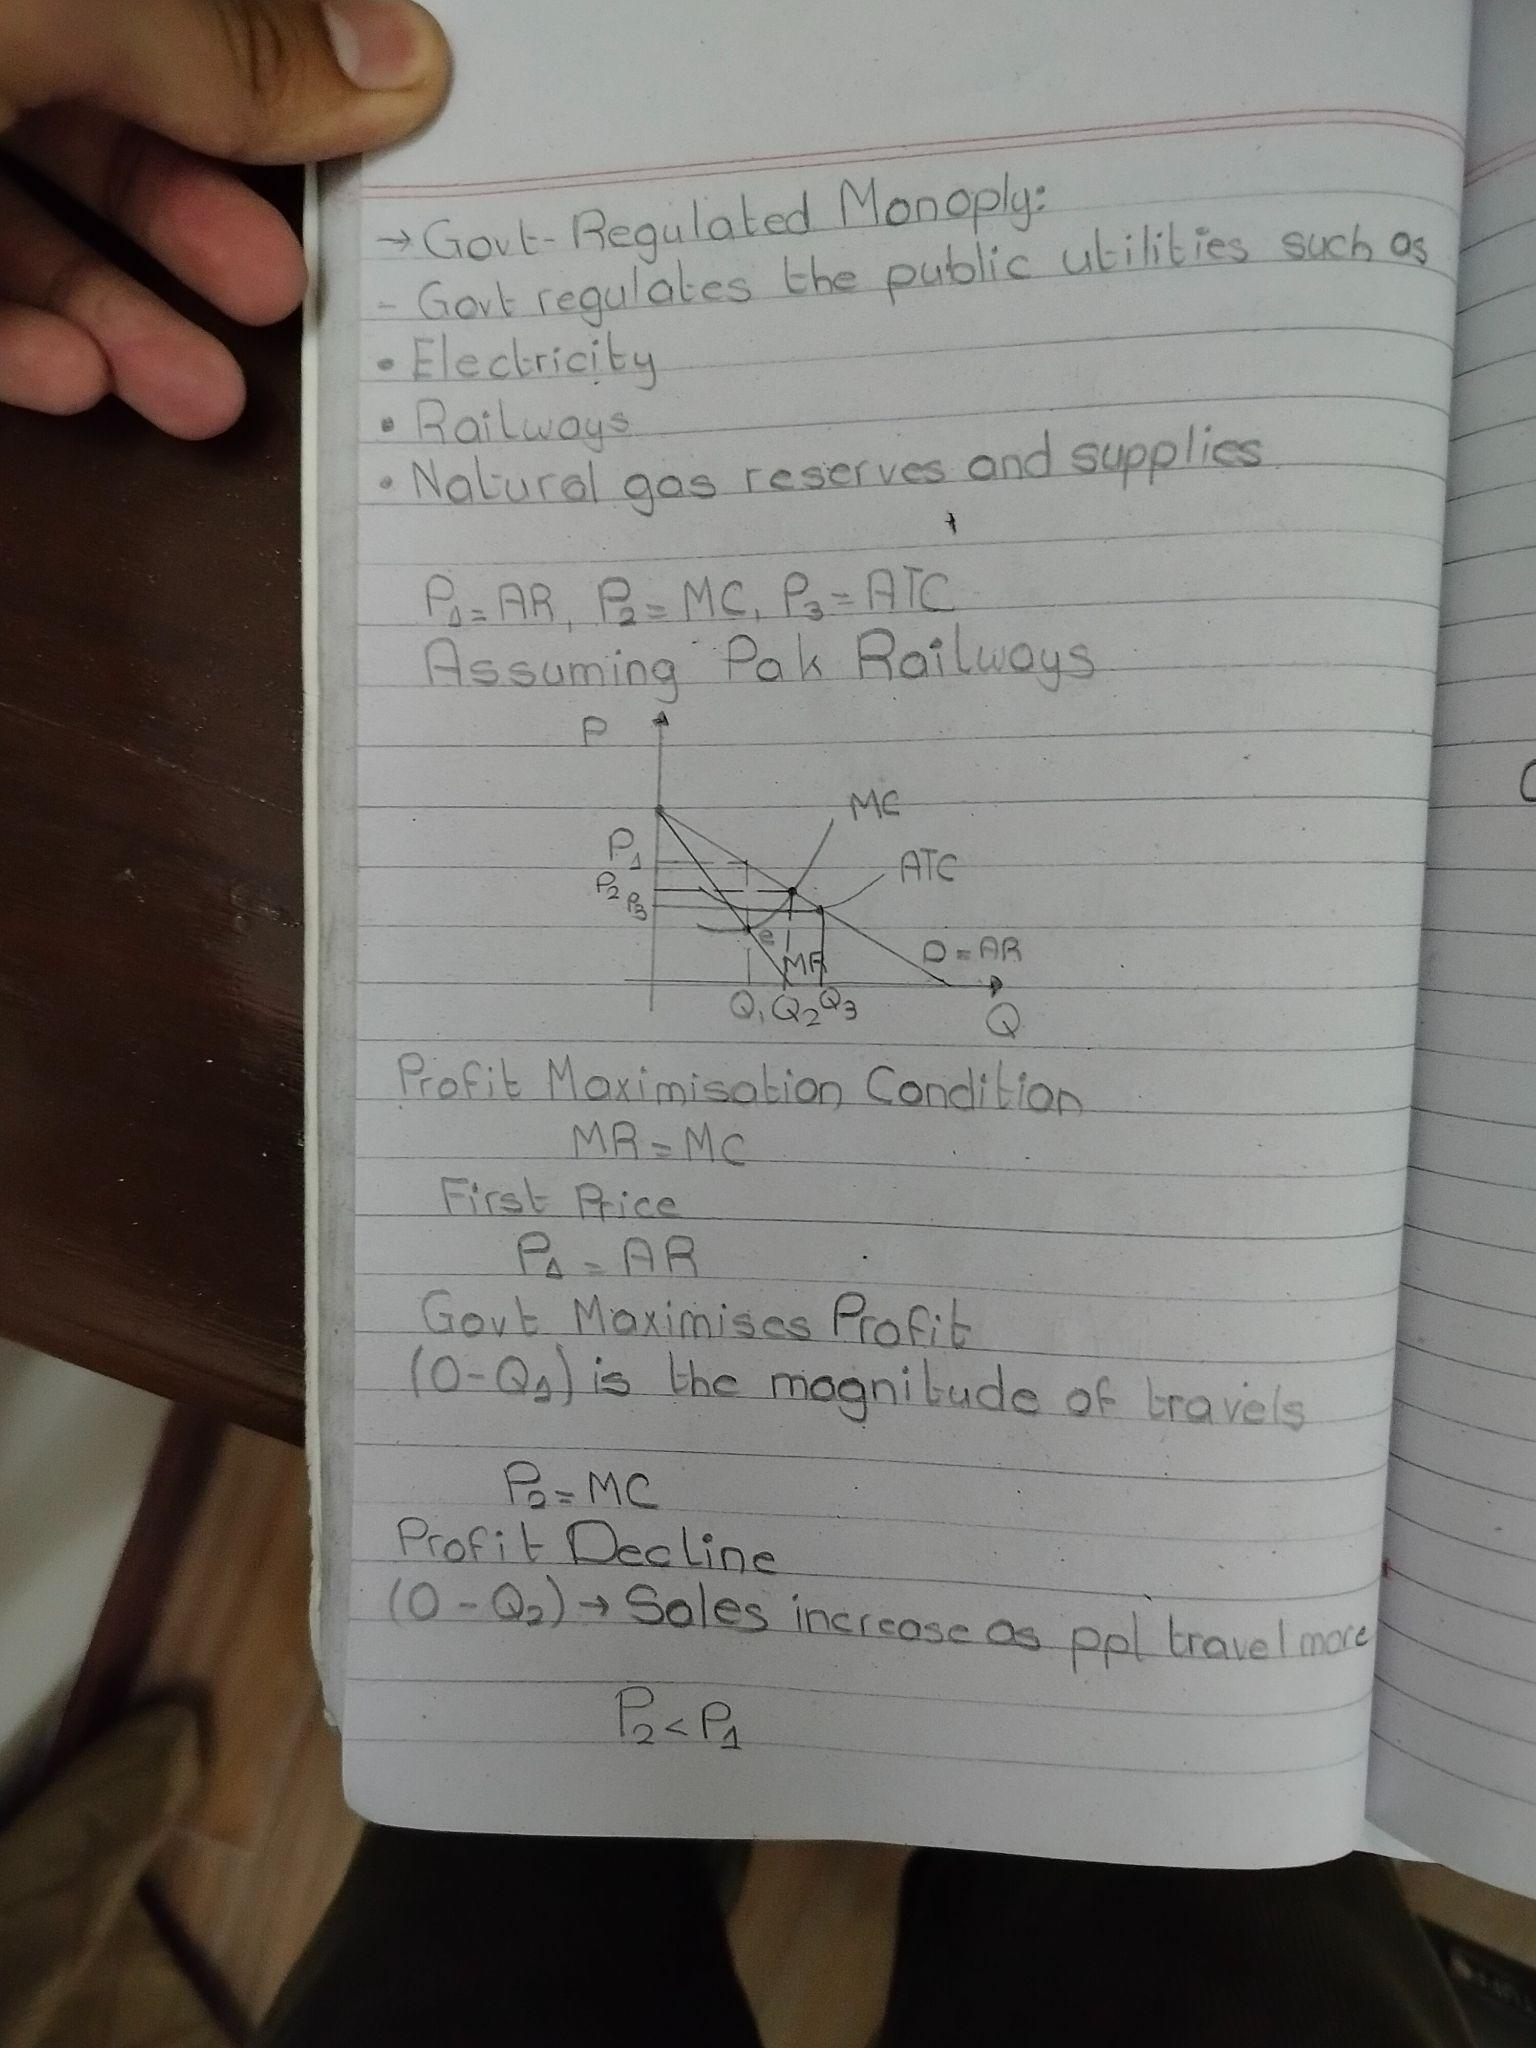 → Govt-Regulated Monoply:
- Govt regulates the public utilities such as
• Electricity
• Railways
• Natural gas reserves and supplies
P1 = AR, P2 = MC, P3 = ATC
Assuming Pak Railways
P
MC
P1
ATC
P2
P3
e
D = AR
MR
Q1 Q2 Q3
Q
Profit Maximisation Condition
MR = MC
First Price
P1 = AR
Govt Maximises Profit
(O-Q1) is the magnitude of travels
P2 = MC
Profit Decline
(O-Q2) → Sales increase as ppl travel more
P2 < P1